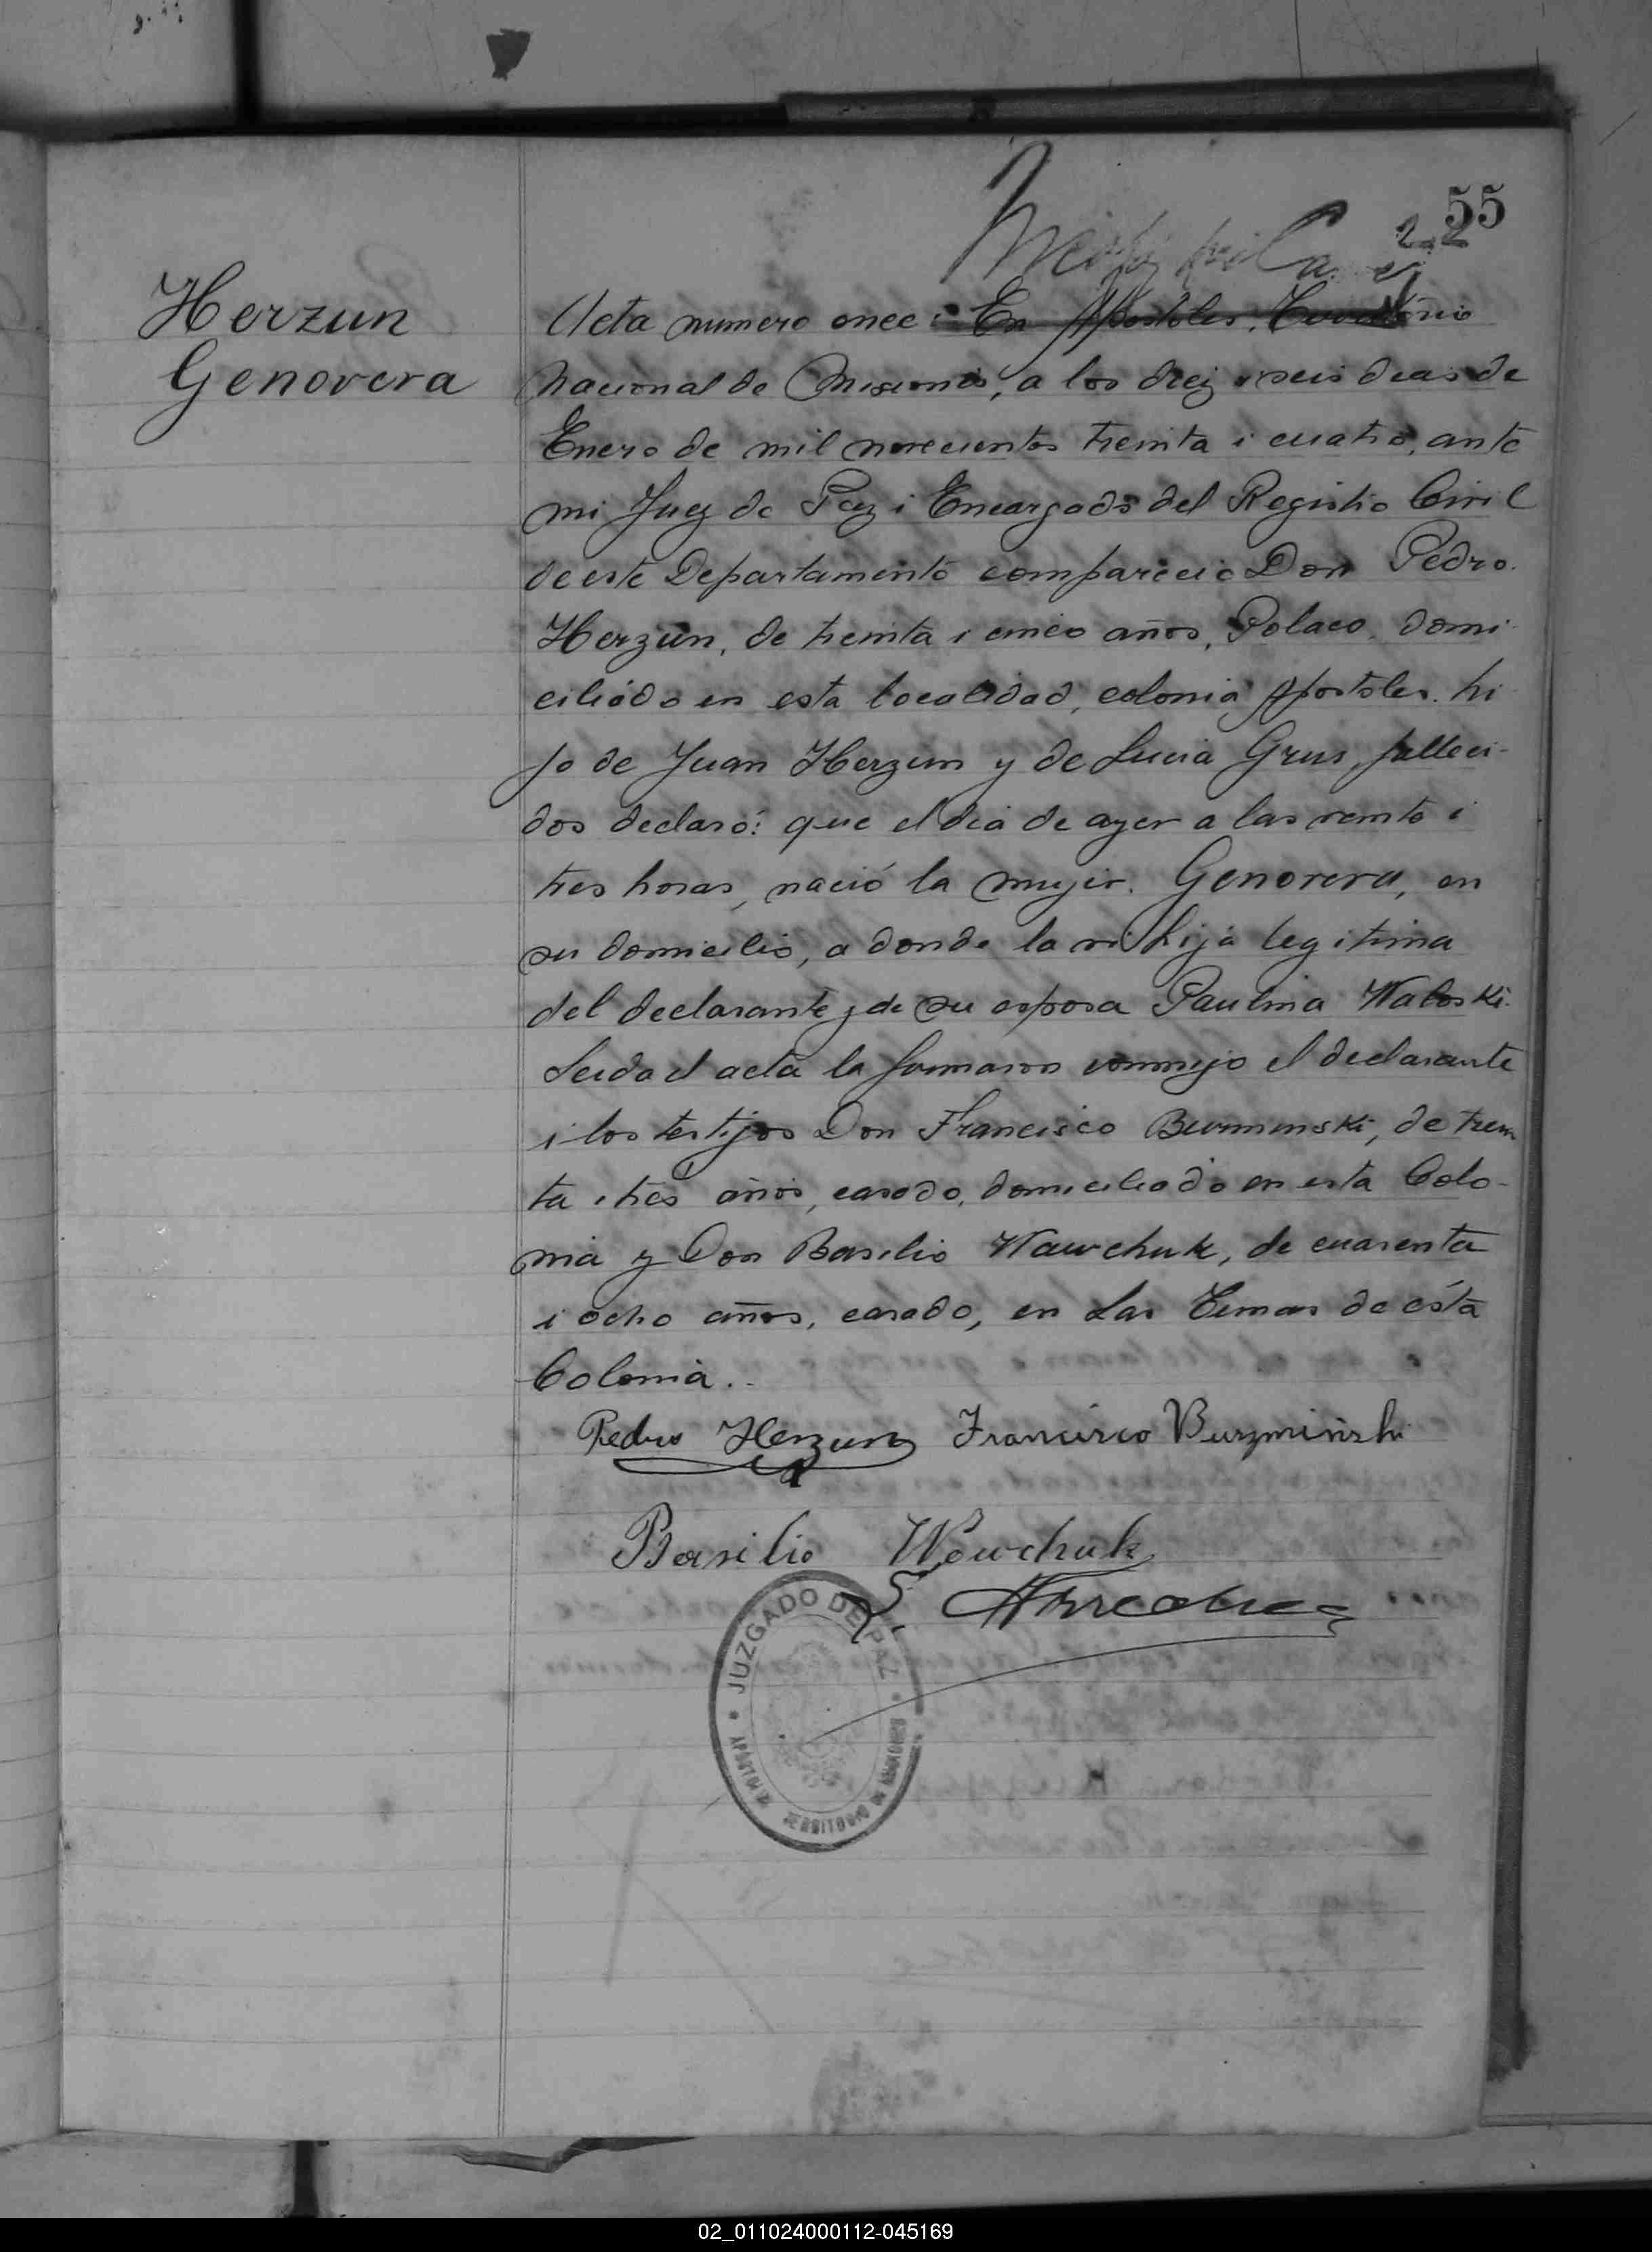 55
Herzun
Genoveva
Acta numero once: En Apostoles, Territorio
Nacional de Misiones, a los diez i seis dias de
Enero de mil novecientos treinta i cuatro, ante
mi Juez de Paz i Encargado del Registro Civil
de este Departamento compareció Don Pedro
Herzun, de treinta i cinco años, Polaco, domi-
ciliado en esta localidad, colonia Apostoles. hi
jo de Juan Herzun y de Lucia Grus, falleci-
dos declaró: que el dia de ayer a las veinte i
tres horas, nació la mujer. Genoveva, en
su domicilio, a donde la vi hija legitima
del declarante y de su esposa Paulina Waloski.
Leida el acta la firmaron conmigo el declarante
i los testijos Don Francisco Burminski, de trein
ta i tres años, casado, domiciliado en esta Colo-
nia y Don Basilio Wawchuk, de cuarenta
i ocho años, casado, en Las Tunas de ésta
Colonia..
Pedro Herzun Francisco Burzminski
Basilio Wowchuk
JUZGADO DE PAZ
APOSTOLES TERRITORIO DE MISIONES
02_011024000112-045169